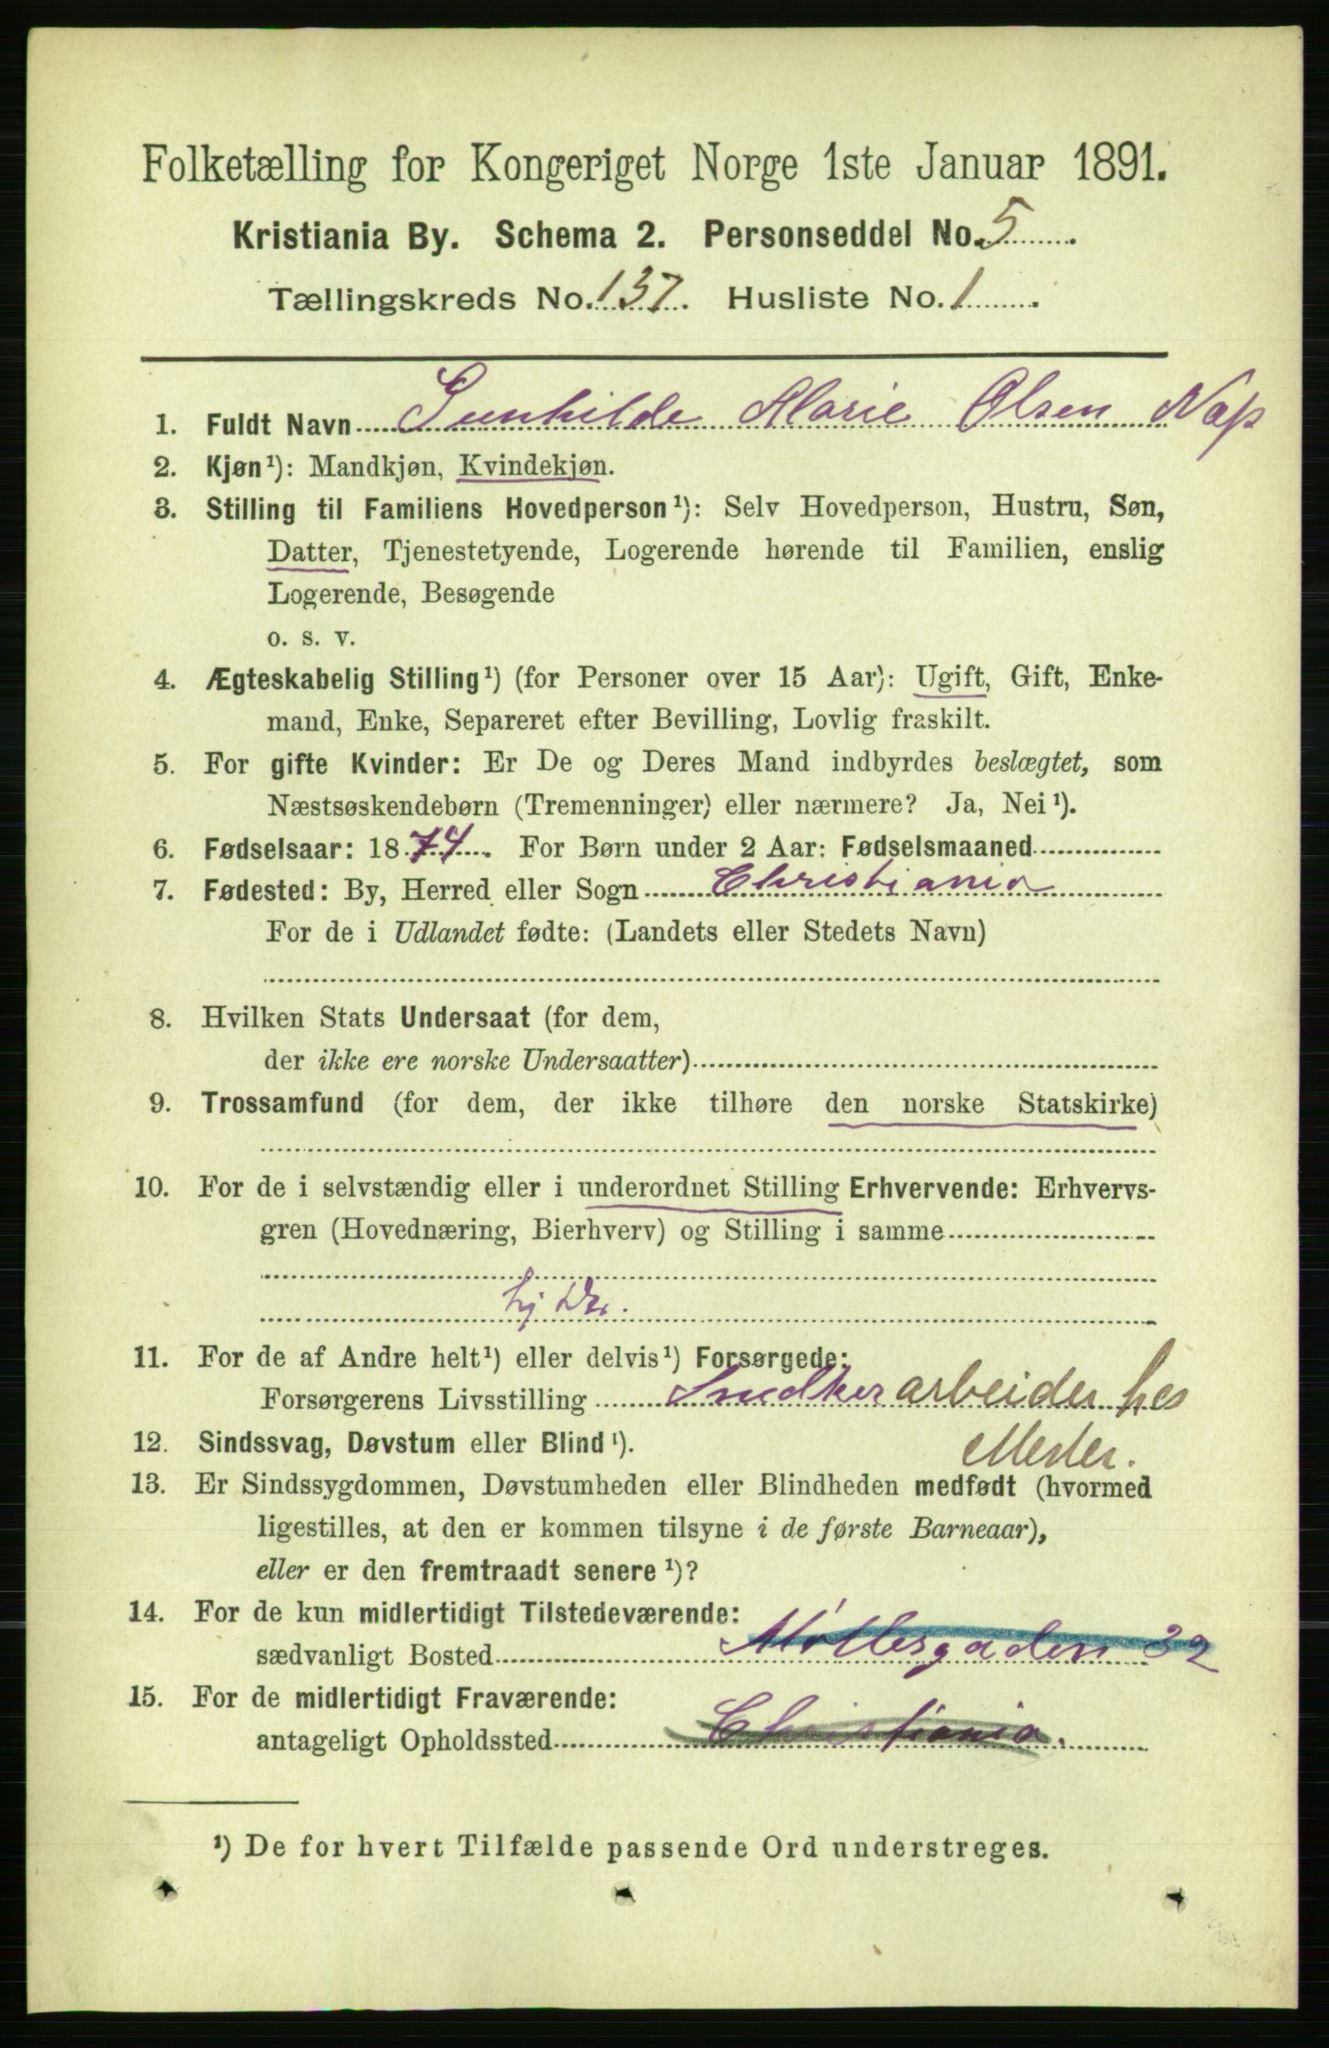 Folketælling for Kongeriget Norge 1ste Januar 1891.
Kristiania By. Schema 2. Personseddel No. 5.
Tællingskreds No. 137. Husliste No. 1.
1. Fuldt Navn Gunhilde Marie Olsen Næss
2. Kjøn¹): Mandkjøn, Kvindekjøn.
3. Stilling til Familiens Hovedperson¹): Selv Hovedperson, Hustru, Søn,
Datter, Tjenestetyende, Logerende hørende til Familien, enslig
Logerende, Besøgende
o. s. v.
4. Ægteskabelig Stilling¹) (for Personer over 15 Aar): Ugift, Gift, Enke-
mand, Enke, Separeret efter Bevilling, Lovlig fraskilt.
5. For gifte Kvinder: Er De og Deres Mand indbyrdes beslægtet, som
Næstsøskendebørn (Tremenninger) eller nærmere? Ja, Nei¹).
6. Fødselsaar: 1874. For Børn under 2 Aar: Fødselsmaaned
7. Fødested: By, Herred eller Sogn Christiania
For de i Udlandet fødte: (Landets eller Stedets Navn)
8. Hvilken Stats Undersaat (for dem,
der ikke ere norske Undersaatter)
9. Trossamfund (for dem, der ikke tilhøre den norske Statskirke)
10. For de i selvstændig eller i underordnet Stilling Erhvervende: Erhvervs-
gren (Hovednæring, Bierhverv) og Stilling i samme
hj
11. For de af Andre helt¹) eller delvis¹) Forsørgede:
Forsørgerens Livsstilling Snedkerarbeider hos
Mester.
12. Sindssvag, Døvstum eller Blind¹).
13. Er Sindssygdommen, Døvstumheden eller Blindheden medfødt (hvormed
ligestilles, at den er kommen tilsyne i de første Barneaar),
eller er den fremtraadt senere¹)?
14. For de kun midlertidigt Tilstedeværende:
sædvanligt Bosted Møllergaden 32
15. For de midlertidigt Fraværende:
antageligt Opholdssted Christiania.
¹) De for hvert Tilfælde passende Ord understreges.